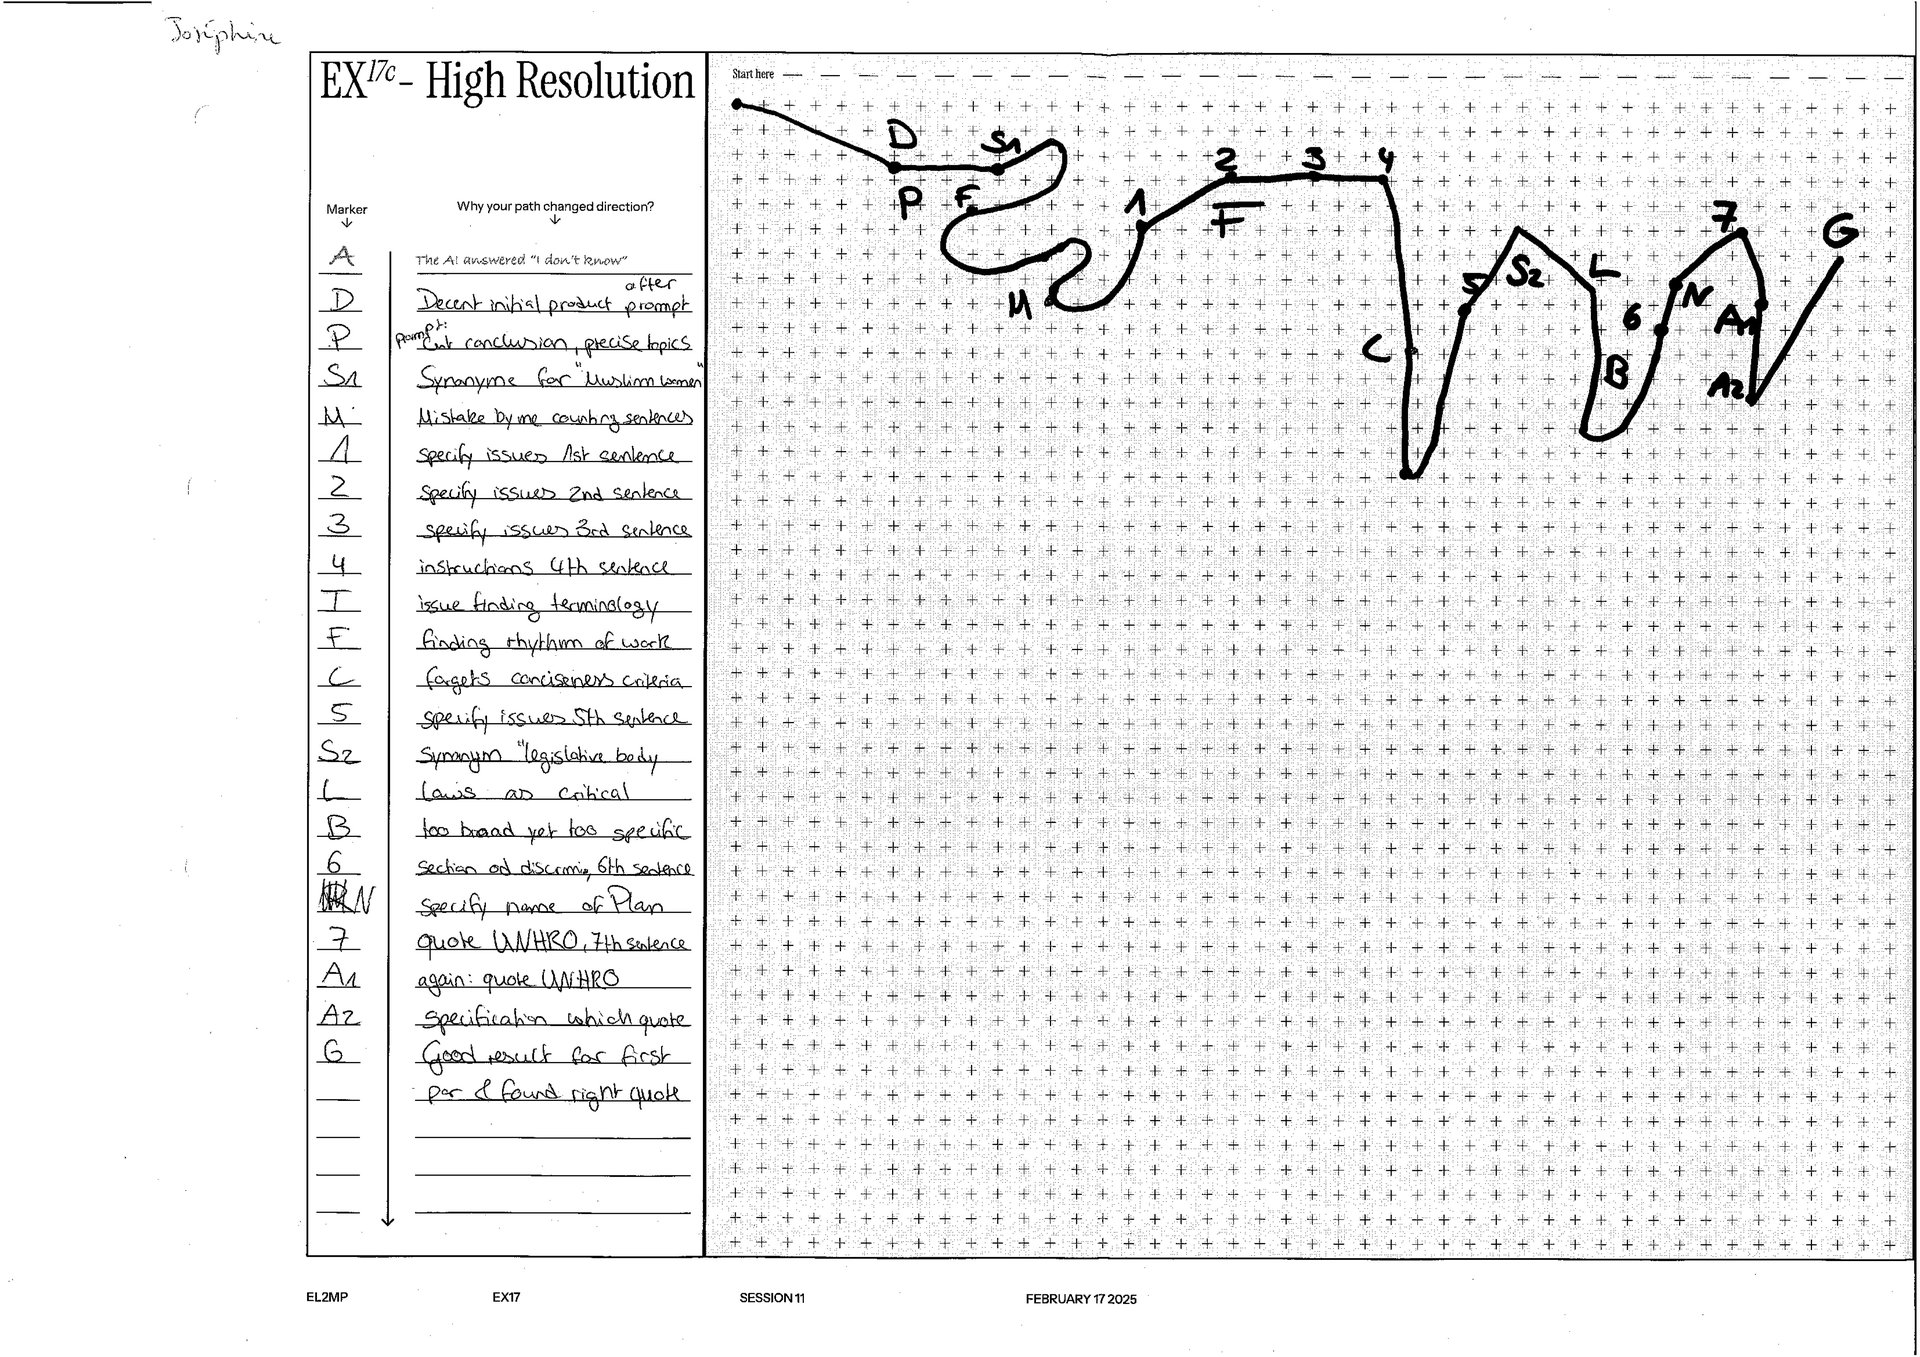 Joséphine
EX17c - High Resolution
Marker
Why your path changed direction?
A The AI answered "I don't know"
after
D Decent initial product prompt
prompt:
P Cut conclusion, precise topics
S1 Synonyme for "Muslim women"
M Mistake by me counting sentences
1 specify issues 1st sentence
2 specify issues 2nd sentence
3 specify issues 3rd sentence
4 instructions 4th sentence
T issue finding terminology
F finding rhythm of work
C forgets conciseness criteria
5 specify issues 5th sentence
S2 Synonym "legislative body
L Laws as critical
B too broad yet too specific
6 section od discrimi, 6th sentence
N specify name of Plan
7 quote UNHRO, 7th sentence
A1 again: quote UNHRO
A2 specification which quote
G Good result for first
par & found right quote
Start here
D S1 2 3 4
P F 1 F 7 G
M 5 S2 L
C 6 N A1
B A2
EL2MP EX17 SESSION 11 FEBRUARY 17 2025